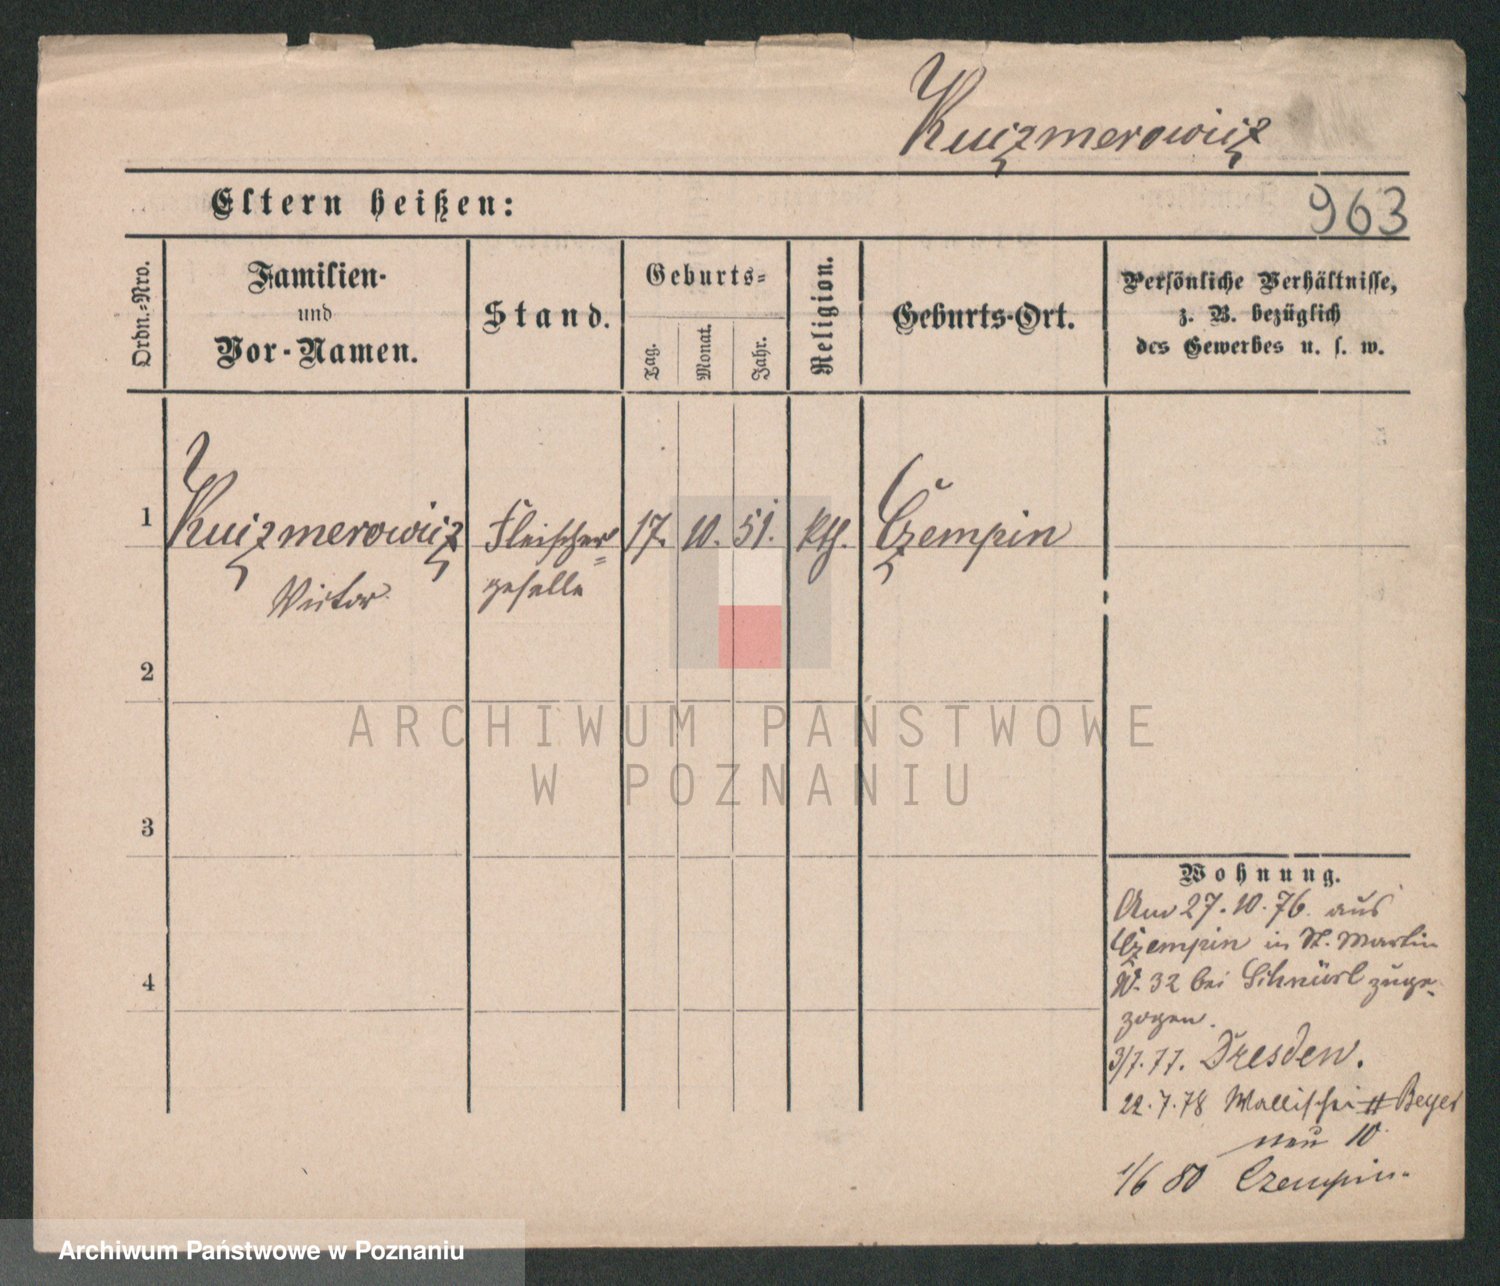 Kuczmerowicz
Eltern heißen:
963
Ordn.-Nro.
Familien-
und
Vor-Namen.
Stand.
Geburts-
Tag.
Monat.
Jahr.
Religion.
Geburts-Ort.
Persönliche Verhältnisse,
z. B. bezüglich
des Gewerbes u. s. w.
1
Kuczmerowicz
Victor
Fleischer=
geselle
17.
10.
51.
kth.
Czempin
2
3
4
Wohnung.
Am 27.10.76. aus
Czempin in St. Martin
N. 32 bei zuge-
zogen.
3/7.77. Dresden.
22.7.78 Wallischei 11 Beyer
neu 10
1/6 80 Czempin.
ARCHIWUM PAŃSTWOWE
W POZNANIU
Archiwum Państwowe w Poznaniu